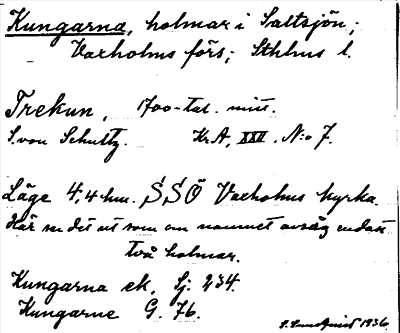 Kungarna, holmar i Saltsjön,
Vaxholms förs; Sthlms l.
Trekun, 1700-tal. mitt.
S. von Schultz. Kr.A, XXII. N:o 7.
Läge 4,4 km. SSÖ Vaxholms kyrka.
Här ser det ut som om namnet avsåg endast
två holmar.
Kungarna ek. Sj. 234.
Kungarne G. 76.
1936